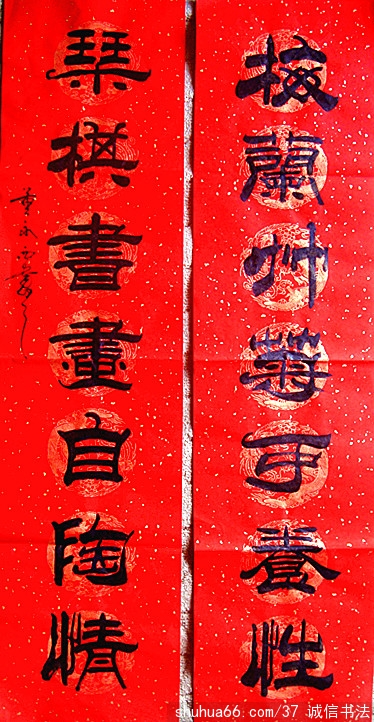 梅蘭竹菊可養性
琴棋書畫自陶情
shuhua66.com/37 诚信书法